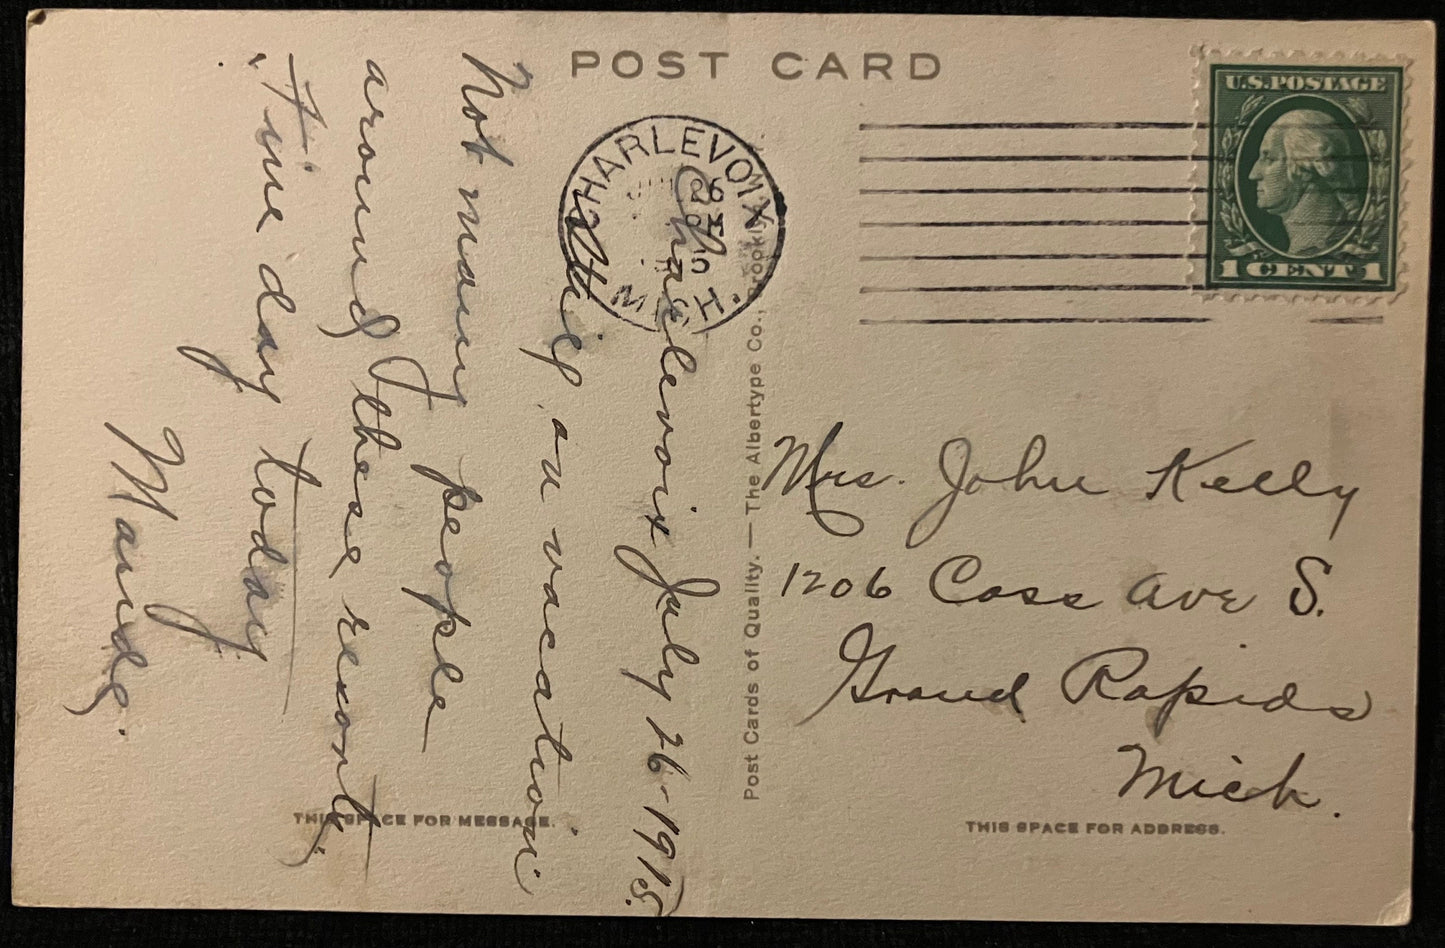 POST CARD
U.S. POSTAGE
1 CENT 1
CHARLEVOIX
26
MICH.
Charlevoix July 26-1915.
on vacation
Not many people
around these resorts,
Fine day today
Maude.
Post Cards of Quality. — The Albertype Co., Brooklyn
Mrs. John Kelly
1206 Cass Ave S.
Grand Rapids
Mich.
THIS SPACE FOR MESSAGE.
THIS SPACE FOR ADDRESS.